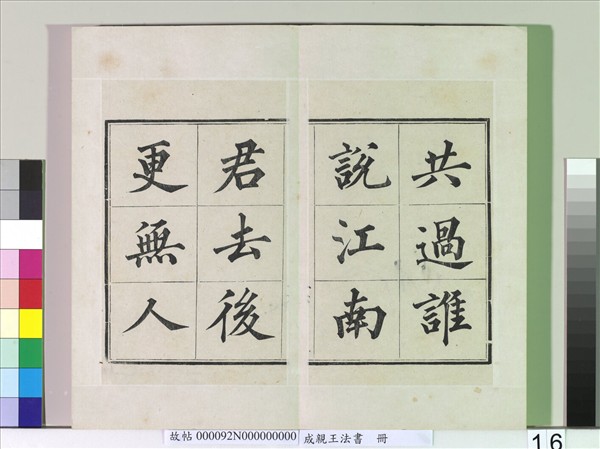 共過誰
說江南
君去後
更無人
故帖 000092N000000000 成親王法書 冊
16